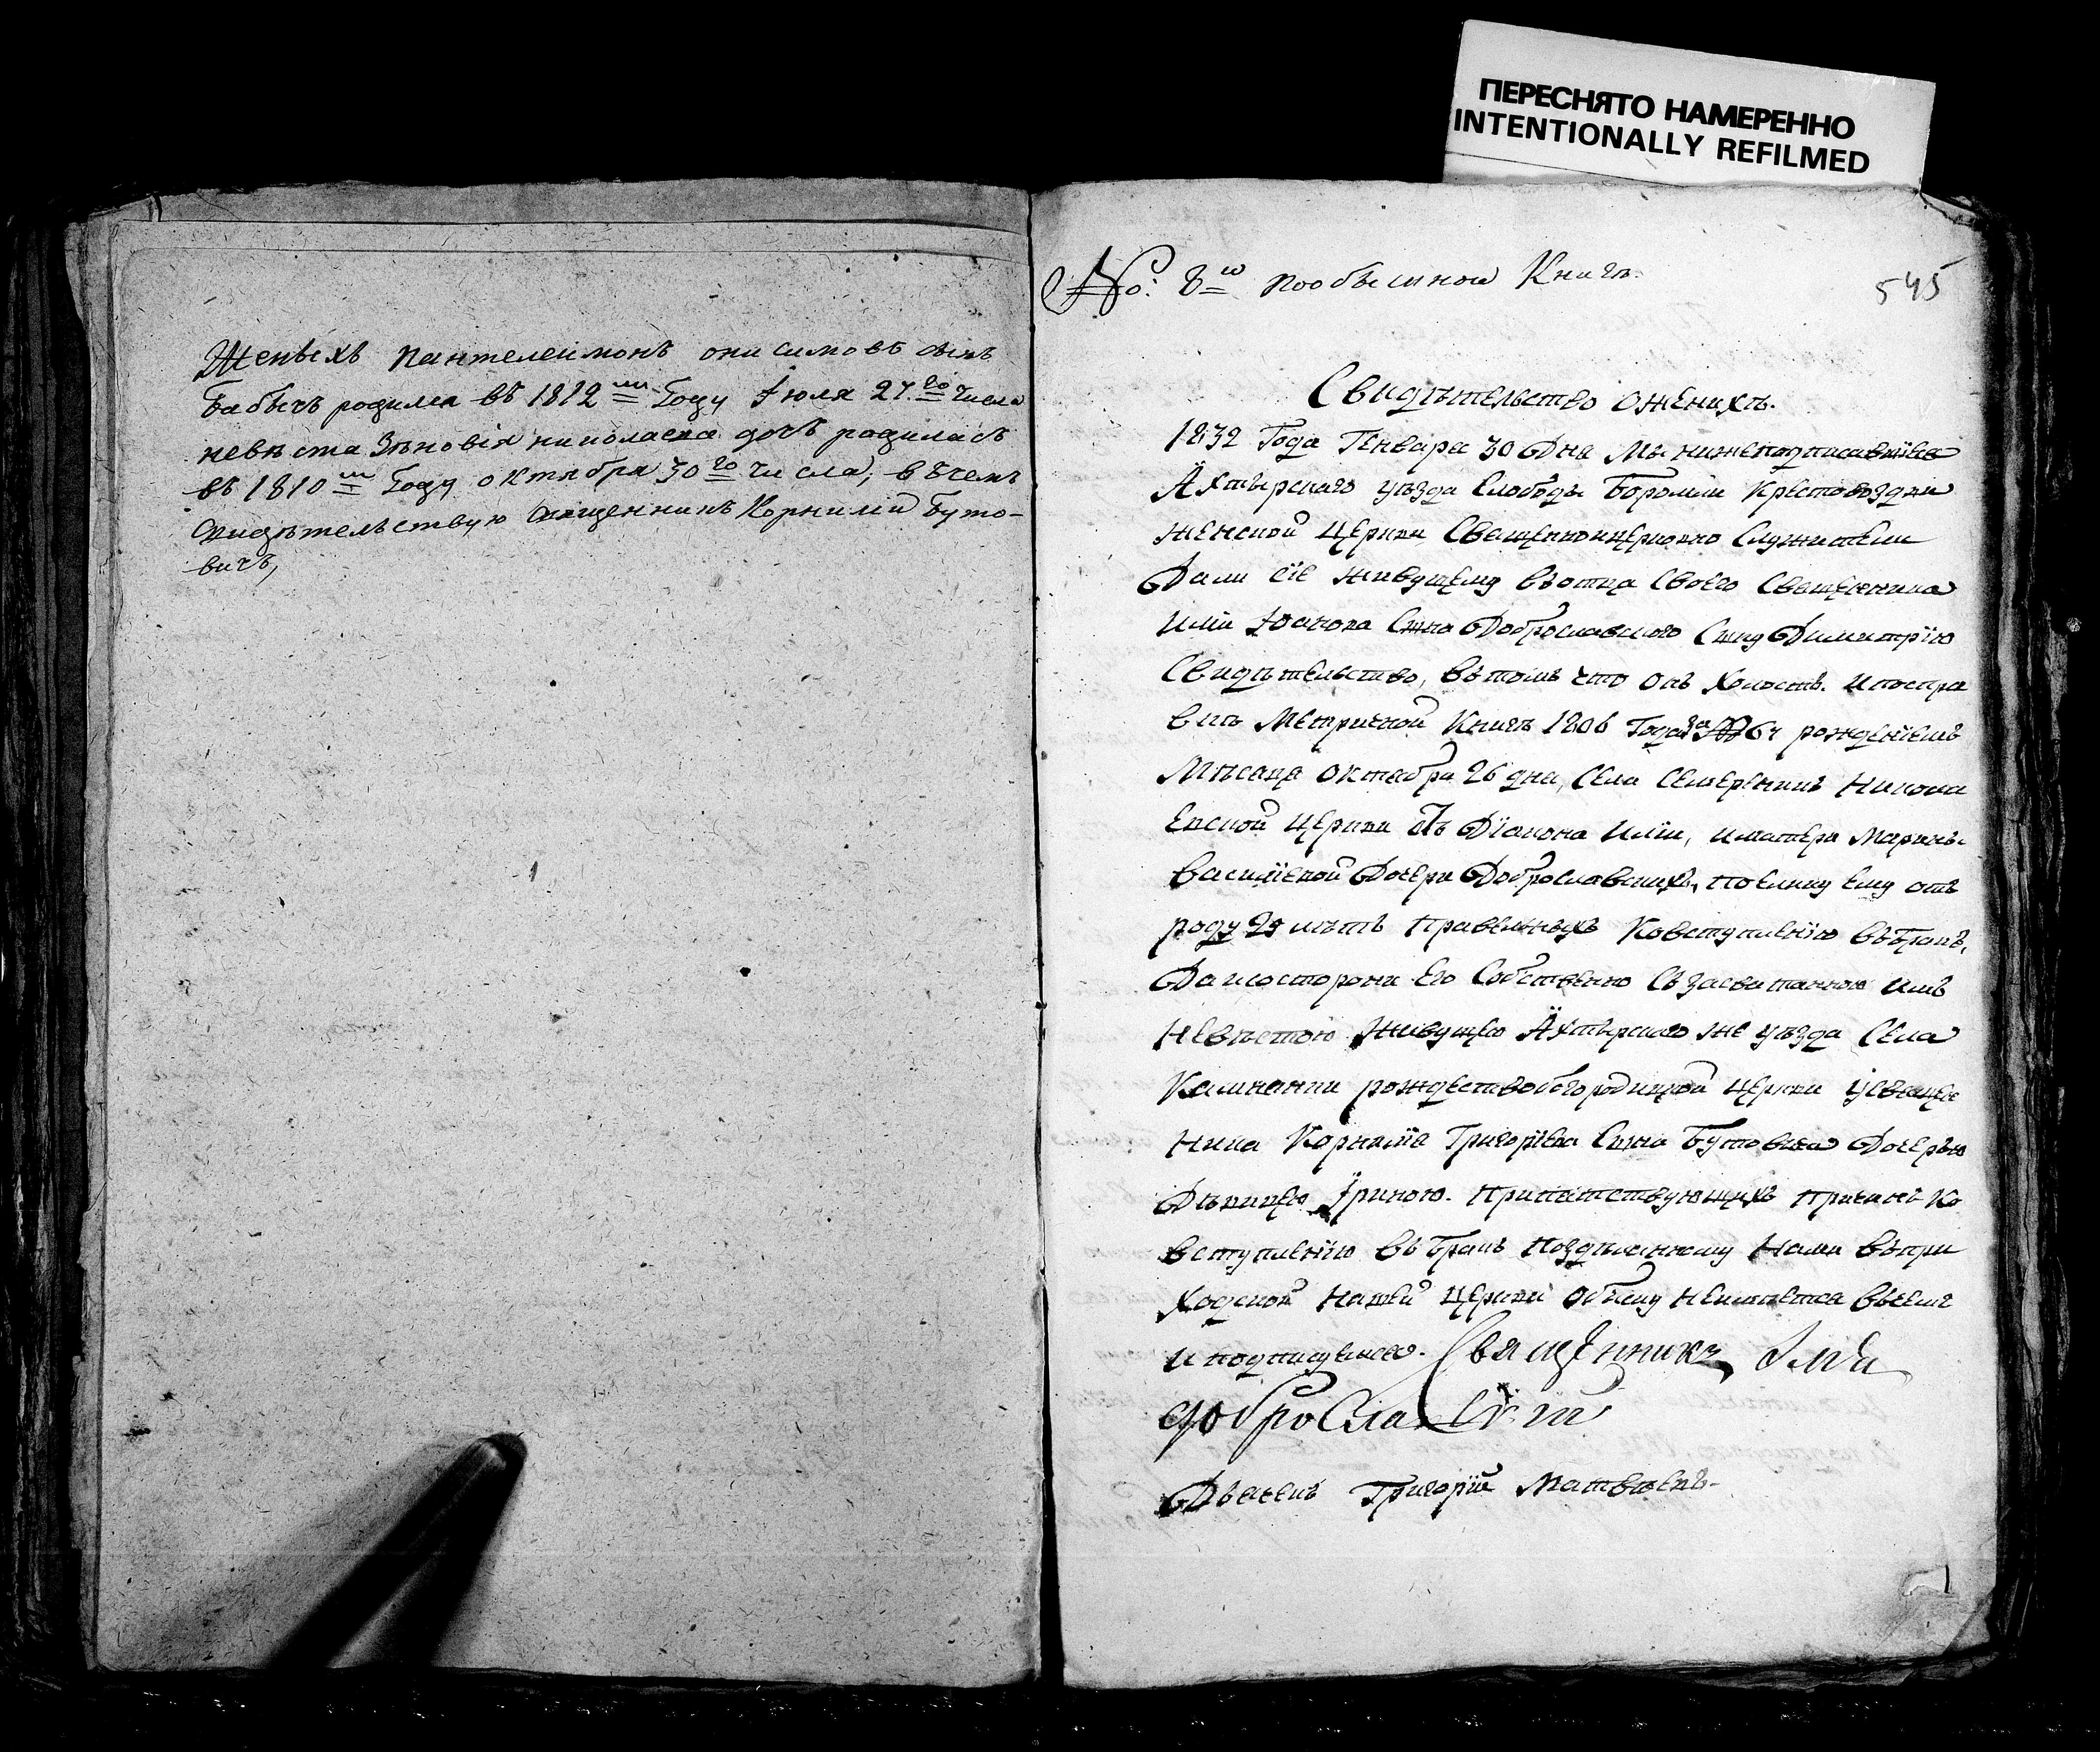 ПЕРЕСНЯТО НАМЕРЕННО
INTENTIONALLY REFILMED
Женыхъ пантелеимонъ онисимовъ сынъ
бабычъ родился въ 1812мъ Году Іюля 27го числа
невѣста Зѣновія николаева дочь родиласъ
въ 1810мъ Году октября 30го числа; в чемъ
свидѣтельствую священникъ Корнилій Буто-
вичъ,
No: 8ю пообыскной Книгѣ.
545
Свидѣтельство оженихѣ.
1832 Года Генваря 30 Дня Мы нижеподписавшїеся
Ахтырскаго уѣзда Слободы Боромли Крестовоздви
женской Церкви Священноицерковно Служители
Дали сїе живущему въ отца Своего Священника
Илїи Іоанова Сына Доброславского Сыну Димитрїю
Свидѣтельство, въ томъ что онъ Холостъ. Ипоспра
вкѣ Метричной Книгѣ 1806 Года за № 64 рожденїемъ
Мѣсаца октабра 26 дня, Села Семереникъ Никола
евской Церкви отъ Дїакона Илїи, иматери Марины
василїевой Дочери Доброславскихъ, поелику ему отъ
роду 25 лѣтъ правелныхъ Ковступленїю въ бракъ,
Даисостороны Его Собственно Съ засватанною имъ
Невѣстою Живущею Ахтырского же уѣзда Села
Камянки рождествобогородицкой церкви усвяще
ника Корнилїя Григорїева Сына Бутовича Дочерью
Дѣвицею Іриною. препятствующихъ причинъ Ко
вступленїю въ бракъ поздѣланному Нами въ при
Ходской Нашей церкви обыску неимѣется въ чемъ
и подписуемся. Священникъ Илїя
доброславскїй
Дьячекъ Григорїй Матвѣевъ.